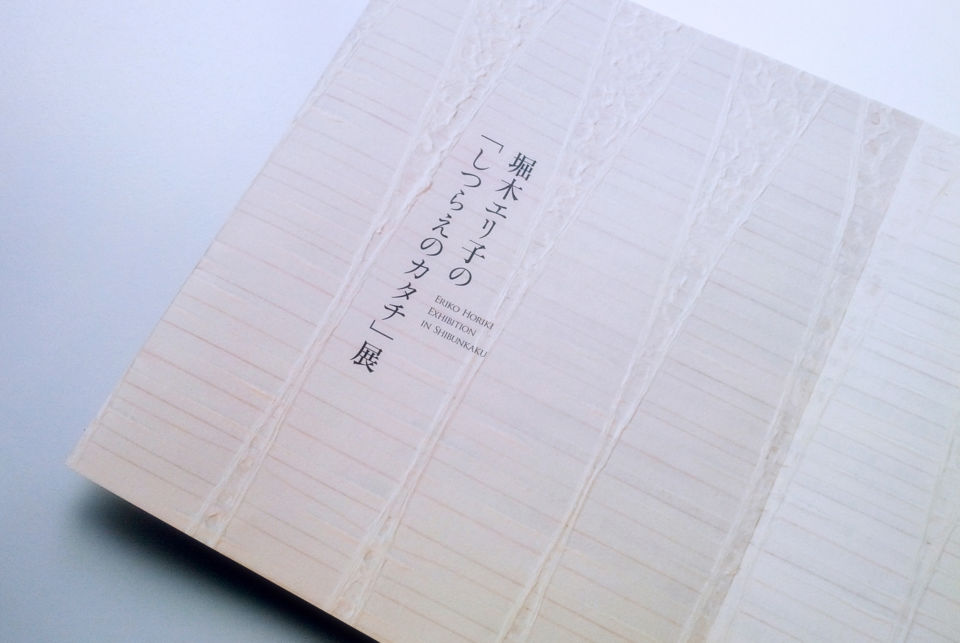 堀木エリ子の
「しつらえのカタチ」展
ERIKO HORIKI
EXHIBITION
IN SHIBUNKAKU